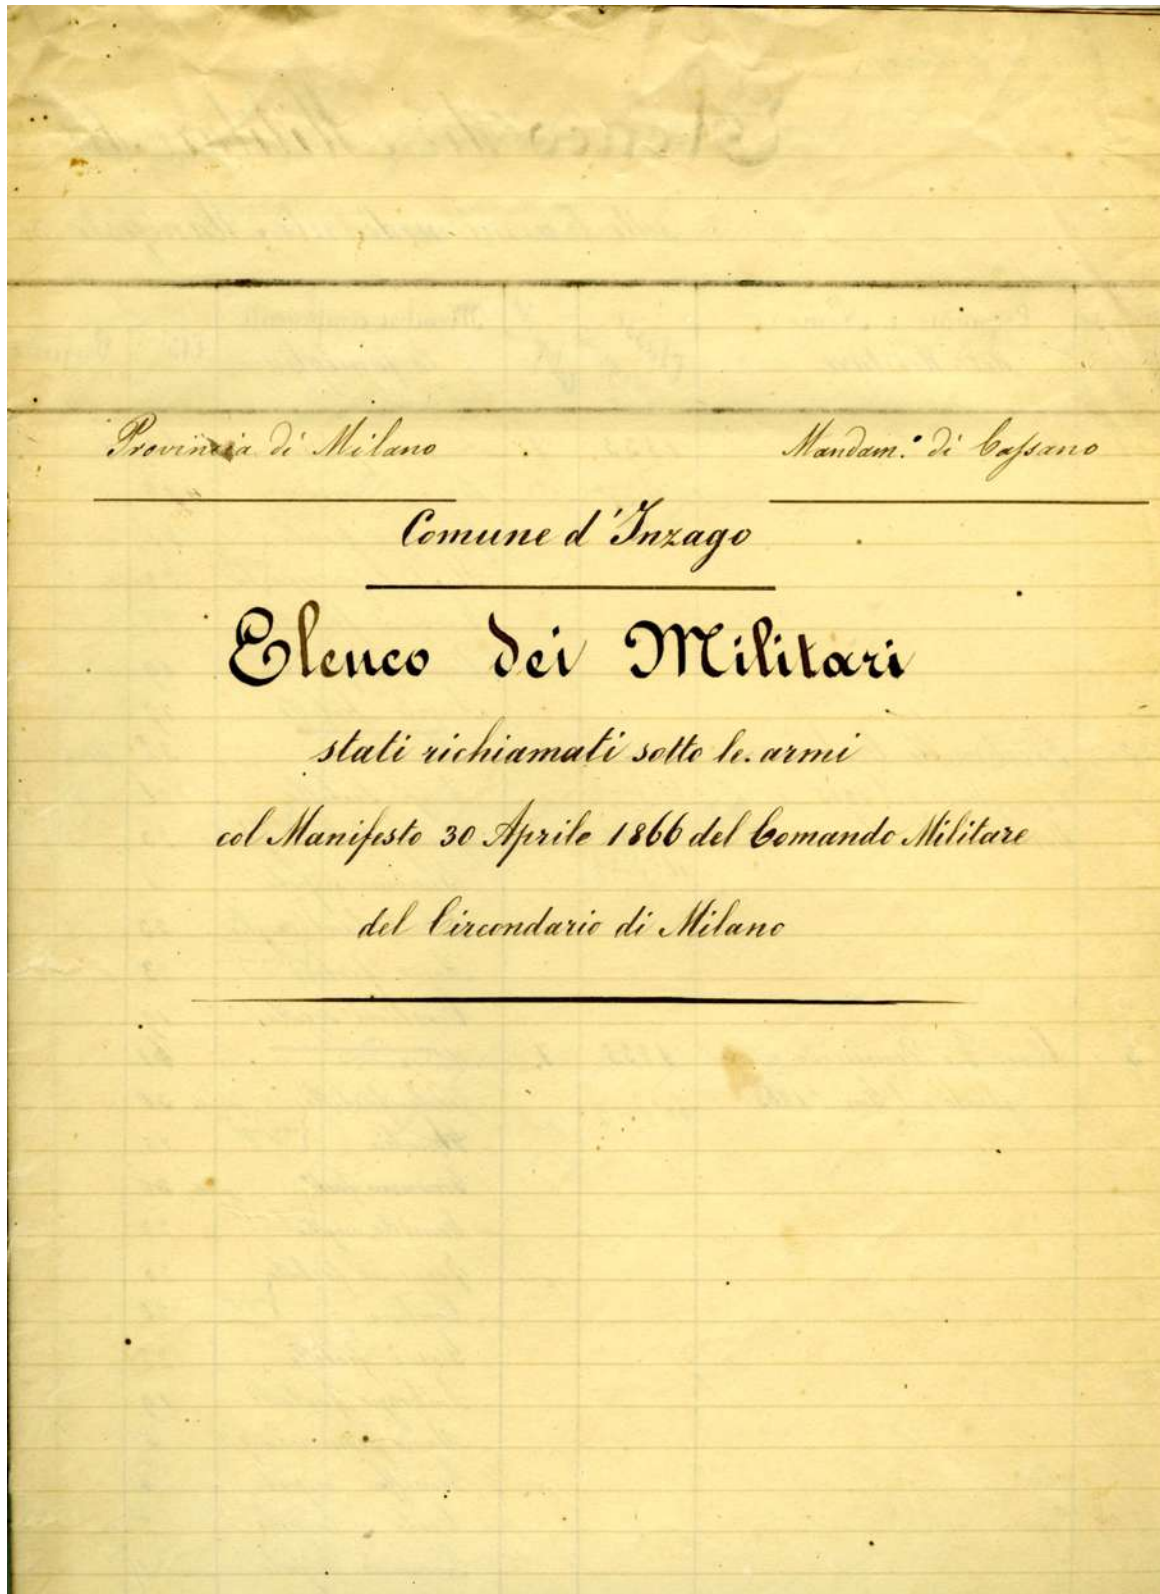 Provincia di Milano
Mandam.º di Cassano
Comune d'Inzago
Elenco dei Militari
stati richiamati sotto le armi
col Manifesto 30 Aprile 1866 del Comando Militare
del Circondario di Milano